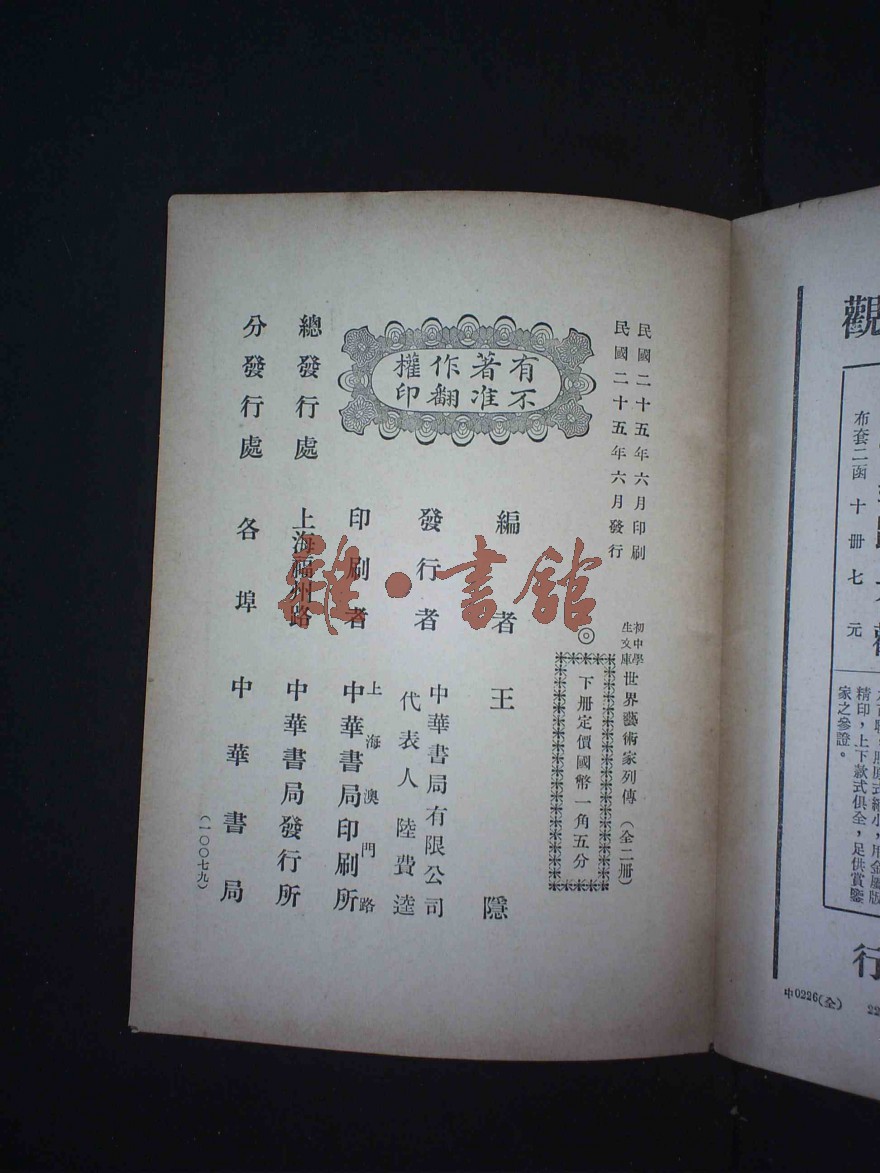 民國二十五年六月印刷
民國二十五年六月發行
初中學
生文庫
世界藝術家列傳（全二冊）
◎
下冊定價國幣一角五分
有著作權
不准翻印
編者 王隱
發行者 中華書局有限公司
代表人 陸費逵
印刷者 上海澳門路
中華書局印刷所
總發行處 上海福州路 中華書局發行所
分發行處 各埠 中華書局
（一〇〇七九）
雜·書館
觀
布套二函 十冊七元
精印，上下款式俱全，足供賞鑒
家之參證。
行
中0226(全)